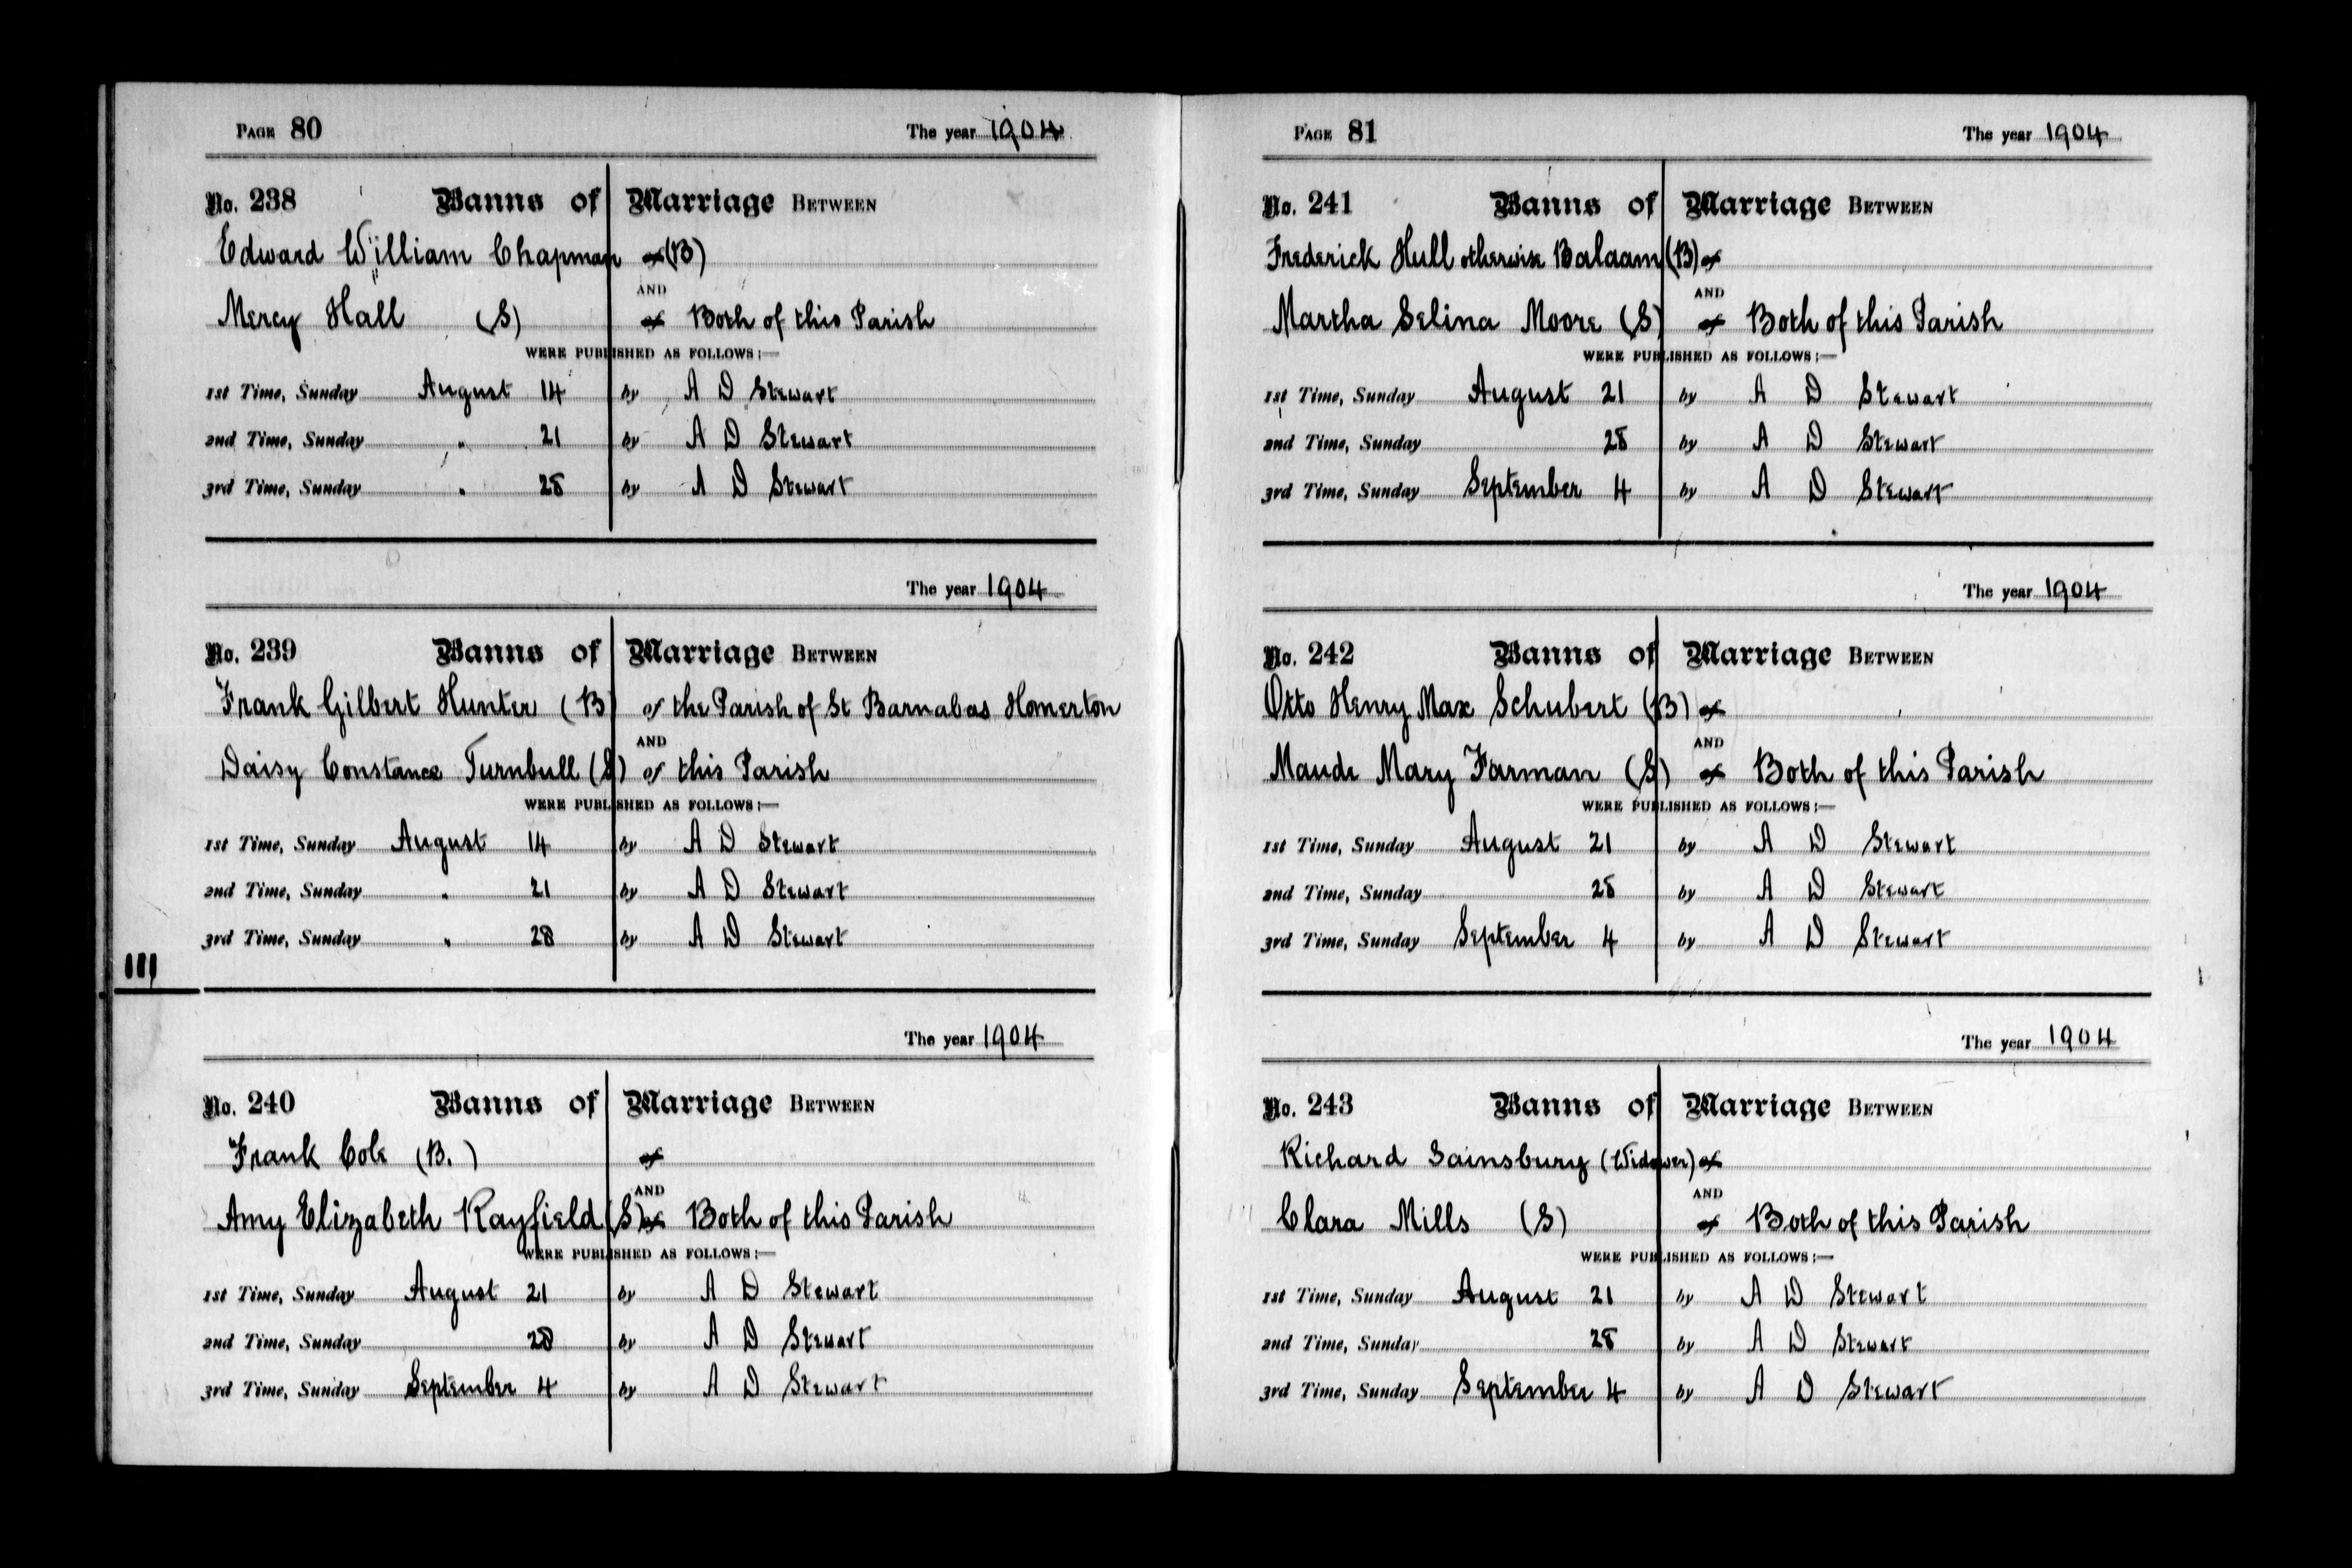 PAGE 80 The year 1904
No. 238 Banns of Marriage BETWEEN
Edward William Chapman of (B)
AND
Mercy Hall (S) of Both of this Parish
WERE PUBLISHED AS FOLLOWS:—
1st Time, Sunday August 14 by A D Stewart
2nd Time, Sunday " 21 by A D Stewart
3rd Time, Sunday " 28 by A D Stewart
The year 1904
No. 239 Banns of Marriage BETWEEN
Frank Gilbert Hunter (B) of the Parish of St Barnabas Homerton
AND
Daisy Constance Turnbull (S) of this Parish
WERE PUBLISHED AS FOLLOWS:—
1st Time, Sunday August 14 by A D Stewart
2nd Time, Sunday " 21 by A D Stewart
3rd Time, Sunday " 28 by A D Stewart
111
The year 1904
No. 240 Banns of Marriage BETWEEN
Frank Cole (B.) of
AND
Amy Elizabeth Rayfield (S) of Both of this Parish
WERE PUBLISHED AS FOLLOWS:—
1st Time, Sunday August 21 by A D Stewart
2nd Time, Sunday 28 by A D Stewart
3rd Time, Sunday September 4 by A D Stewart
PAGE 81 The year 1904
No. 241 Banns of Marriage BETWEEN
Frederick Hull otherwise Balaam (B) of
AND
Martha Selina Moore (S) of Both of this Parish
WERE PUBLISHED AS FOLLOWS:—
1st Time, Sunday August 21 by A D Stewart
2nd Time, Sunday 28 by A D Stewart
3rd Time, Sunday September 4 by A D Stewart
The year 1904
No. 242 Banns of Marriage BETWEEN
Otto Henry Max Schubert (B) of
AND
Maude Mary Farman (S) of Both of this Parish
WERE PUBLISHED AS FOLLOWS:—
1st Time, Sunday August 21 by A D Stewart
2nd Time, Sunday 28 by A D Stewart
3rd Time, Sunday September 4 by A D Stewart
The year 1904
No. 243 Banns of Marriage BETWEEN
Richard Sainsbury (Widower) of
AND
Clara Mills (S) of Both of this Parish
WERE PUBLISHED AS FOLLOWS:—
1st Time, Sunday August 21 by A D Stewart
2nd Time, Sunday 28 by A D Stewart
3rd Time, Sunday September 4 by A D Stewart